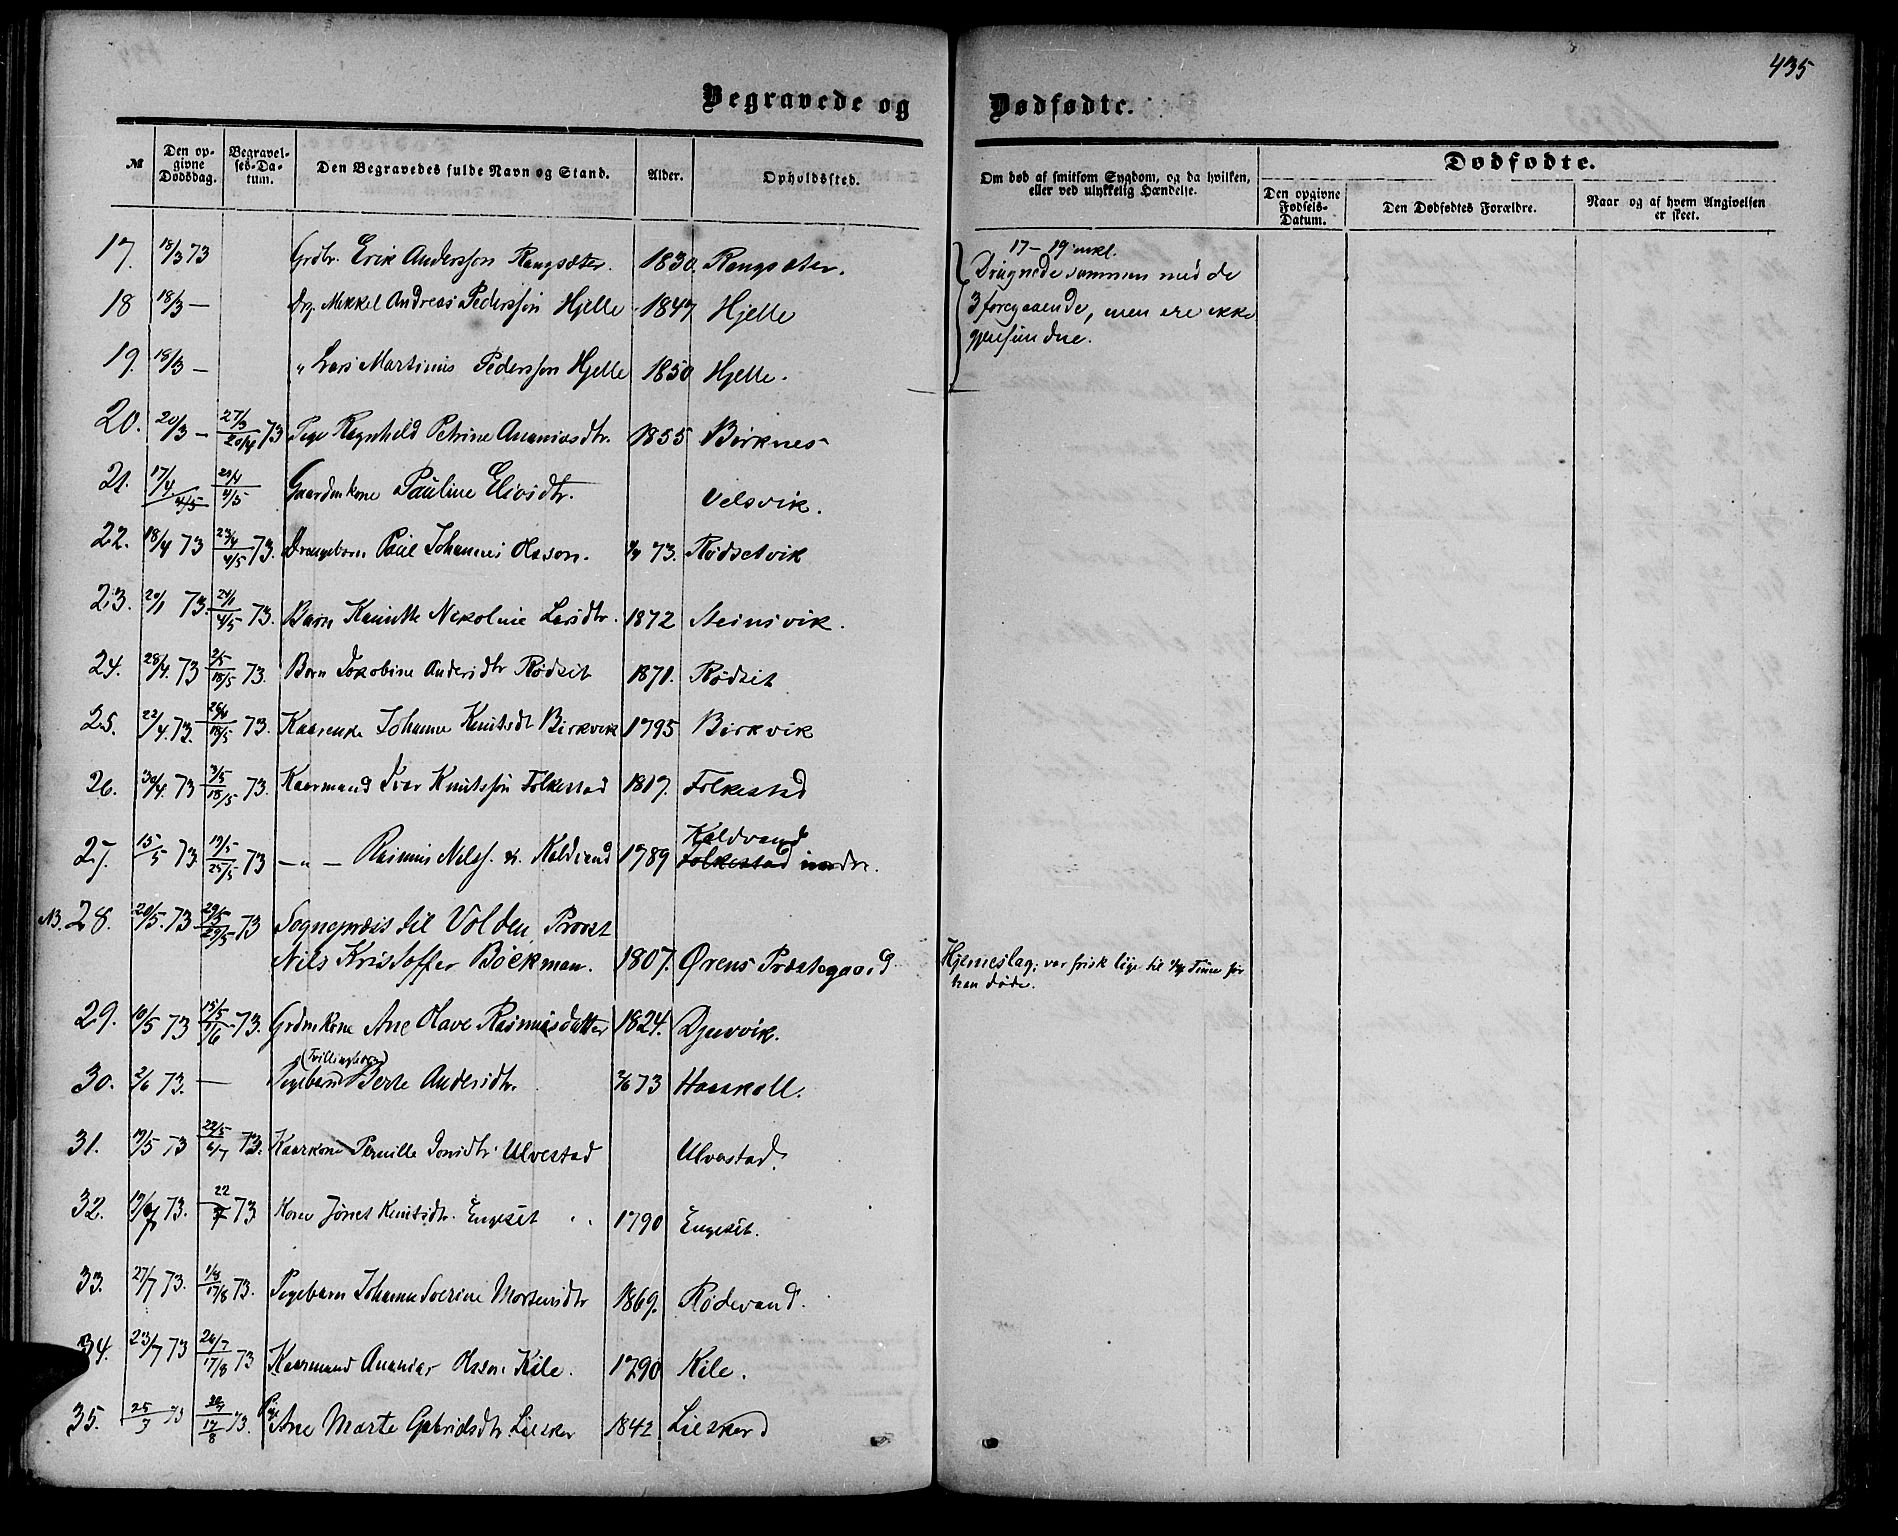 435
Begravede og Dødfødte.
№
Den opgivne Dødsdag.
Begravelses-Datum.
Den Begravedes fulde Navn og Stand.
Alder.
Opholdssted.
Om død af smitsom Sygdom, og da hvilken, eller ved ulykkelig Hændelse.
Dødfødte.
Den opgivne Fødsels-Datum.
Den Dødfødtes Forældre.
Naar og af hvem Angivelsen er skeet.
17. 18/3 73 Grdbr. Erik Anderssøn Rangsæter. 1830. Rangsæter.
17-19 inkl.
Druknede sammen med de
3 foregaaende, men ere ikke
gjenfundne.
18 18/3 — Drg. Mikkel Andreas Pederssøn Hjelle 1847 Hjelle
19. 18/3 — " Lars Martinus Pederssøn Hjelle 1850 Hjelle.
20. 20/3 — 27/3 20/4 73 Pige Ragnhild Petrine Ananiasdtr. 1855 Birknes
21. 17/4 4/5 Gaardmkone Pauline Eliasdtr. Velsvik.
22. 18/4 73 23/4 4/5 73. Drengebarn Paul Johannes Olsson. 73. Rødsetvik
23. 73. 4/5 73. Barn Nikoline Larsdtr. 1872 Steinsvik.
24. 28/4. 73 2/5 18/5 73. Barn Jakobine Andersdtr Rødset 1871. Rødset
25. 22/4. 73. 26/4 18/5 73. Kaarenke Johanne Knutsdt Birkvik 1795 Birkvik
26. 30/4. 73 3/5 18/5 73. Kaarmand Ivar Knutssøn Folkestad 1817. Folkestad
27. 15/5 73 19/5 25/5 73 — " — Rasmus Nelss. Kaldvand 1789 Kaldvand
Folkestad indre.
NB. 28. 20/5. 73 29/5 29/5 73 Sognepræst til Volden, Provst
Nils Kristoffer Böckman. 1807. Ørens Præstegaard Hjerneslag; var frisk lige til Time før
han døde.
29. 10/5 73 15/5 1/6 73. Grdmkone Ane Olave Rasmusdatter 1824. Djuvvik.
30. 2/6 73. — (Tvillingbarn)
Pigebarn Berte Andersdtr. 73 Haaskoll.
31. 19/5 73 22/5 6/7 73. Kaarkone Pernille Jonsdtr Ulvestad Ulvestad.
32. 73. 22/7 73 Kone Knutsdtr. Engeset 1790 Engeset.
33. 27/7 73. 1/8 17/8 73. Pigebarn Johanne Severine Mortensdtr 1869. Rødevand.
34. 23/7 73 26/7 17/8 73 Kaarmand Ananias Olsson Kile. 1790 Kile.
35. 25/7 73 17/8 73. Pige Ane Marte Gabrielsdtr Liesker 1842 Lieskard